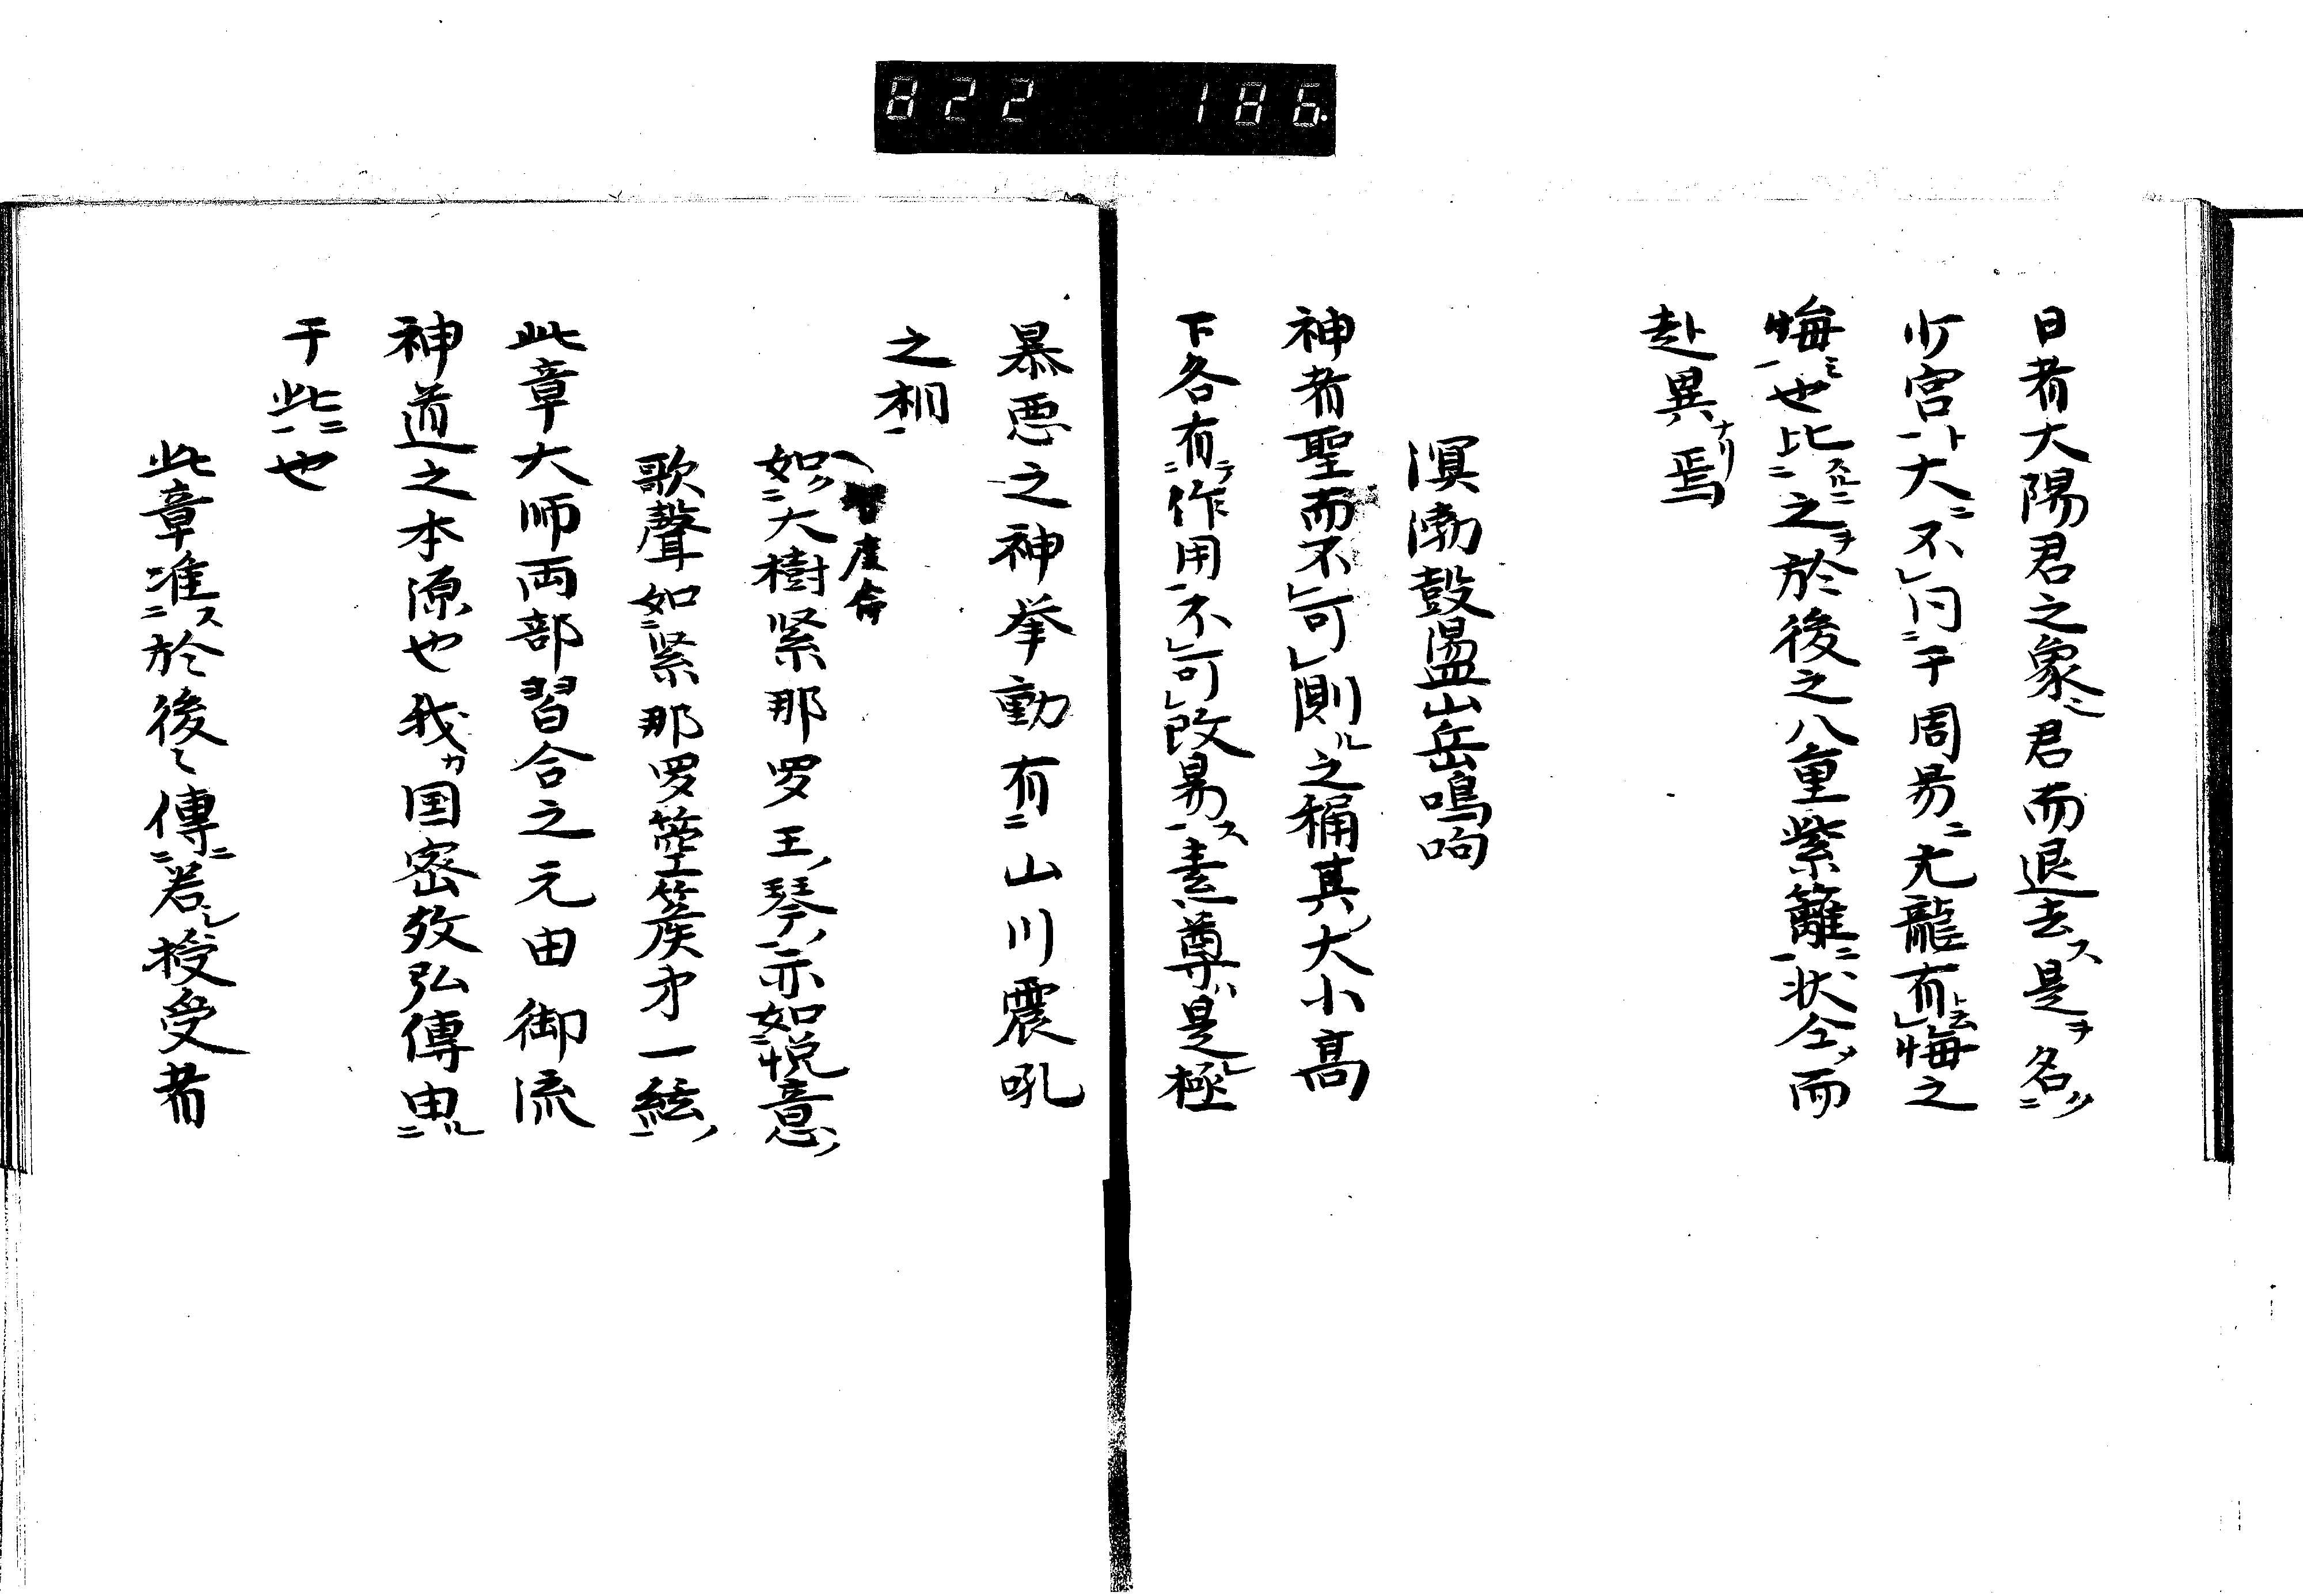 822 186.
日者大陽君之象ニ君而退去ス是ヲ名ツ
少宮ト大ニ不レ同二于周易ニ亢龍有レ悔之
悔ミ一也比スルニ二之ヲ於後之八重紫籬ニ一状全ノ而
赴異ナリ焉
溟渤鼓盪山岳鳴呴
神者聖而不レ可レ測ル之稱其ノ大小高
下各有ラ二作用一不レ可レ改易ス一素尊ハ是レ極
暴悪之神挙動有二山川震吼
之相一
如ノ二大樹緊那罗王ノ琴ノ一亦如二悦意ノ
歌聲如二緊那罗箜篌才一絃ノ一
此章大师両部習合之元由御流
神道之本源也我カ国密教弘傳由ル二
于此ニ一也
此章准ス二於後々傳ニ二若レ授受者